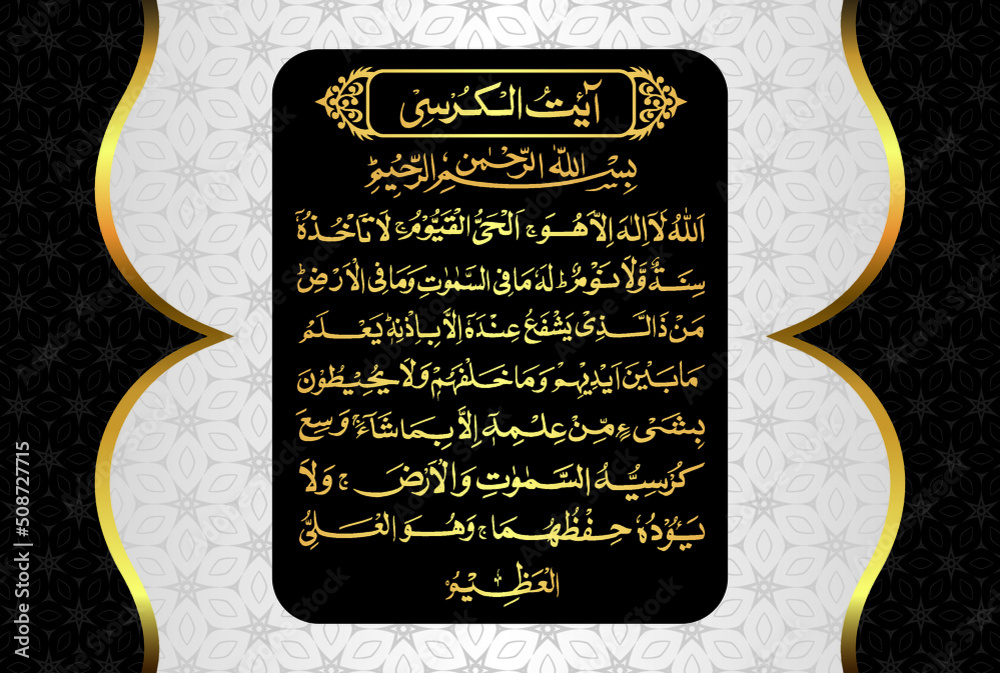 آیت الکرسی
بسم الله الرحمن الرحیم
اَللّٰهُ لَاۤ اِلٰهَ اِلَّا هُوَۚ اَلْحَیُّ الْقَیُّوْمُ ۚ لَا تَاْخُذُهٗ
سِنَةٌ وَّلَا نَوْمٌؕ لَهٗ مَا فِی السَّمٰوٰتِ وَمَا فِی الْاَرْضِؕ
مَنْ ذَا الَّذِیْ یَشْفَعُ عِنْدَهٗۤ اِلَّا بِاِذْنِهٖؕ یَعْلَمُ
مَا بَیْنَ اَیْدِیْهِمْ وَمَا خَلْفَهُمْۚ وَلَا یُحِیْطُوْنَ
بِشَیْءٍ مِّنْ عِلْمِهٖۤ اِلَّا بِمَا شَآءَۚ وَسِعَ
كُرْسِیُّهُ السَّمٰوٰتِ وَالْاَرْضَۚ وَلَا
یَـُٔوْدُهٗ حِفْظُهُمَاۚ وَهُوَ الْعَلِیُّ
الْعَظِیْمُ
Adobe Stock | #508727715